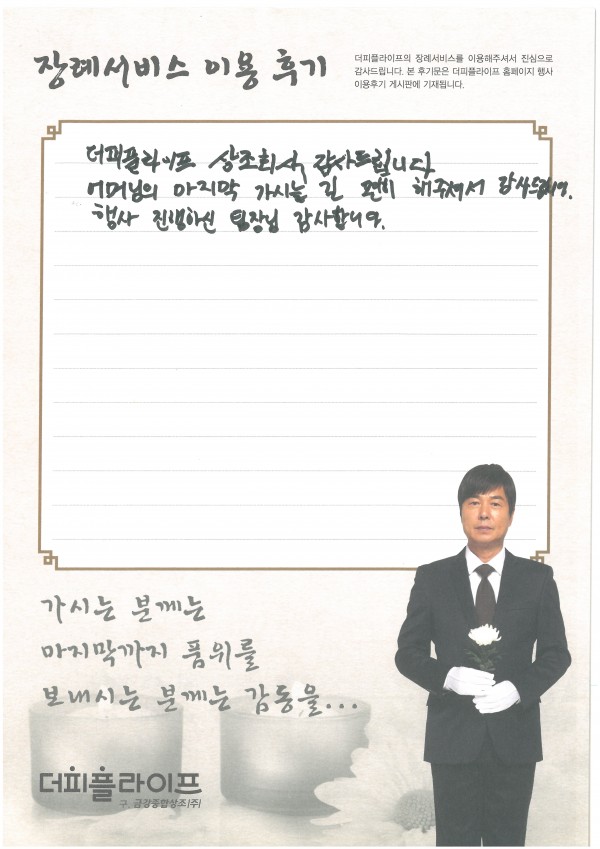 장례서비스 이용 후기
더피플라이프의 장례서비스를 이용해주셔서 진심으로
감사드립니다. 본 후기문은 더피플라이프 홈페이지 행사
이용후기 게시판에 기재됩니다.
더피플라이프 상조회사 감사드립니다
어머님의 마지막 가시는 길 편히 해주셔서 감사드립니다.
행사 진행하신 팀장님 감사합니다.
가시는 분께는
마지막까지 품위를
보내시는 분께는 감동을...
더피플라이프
구. 금강종합상조(주)